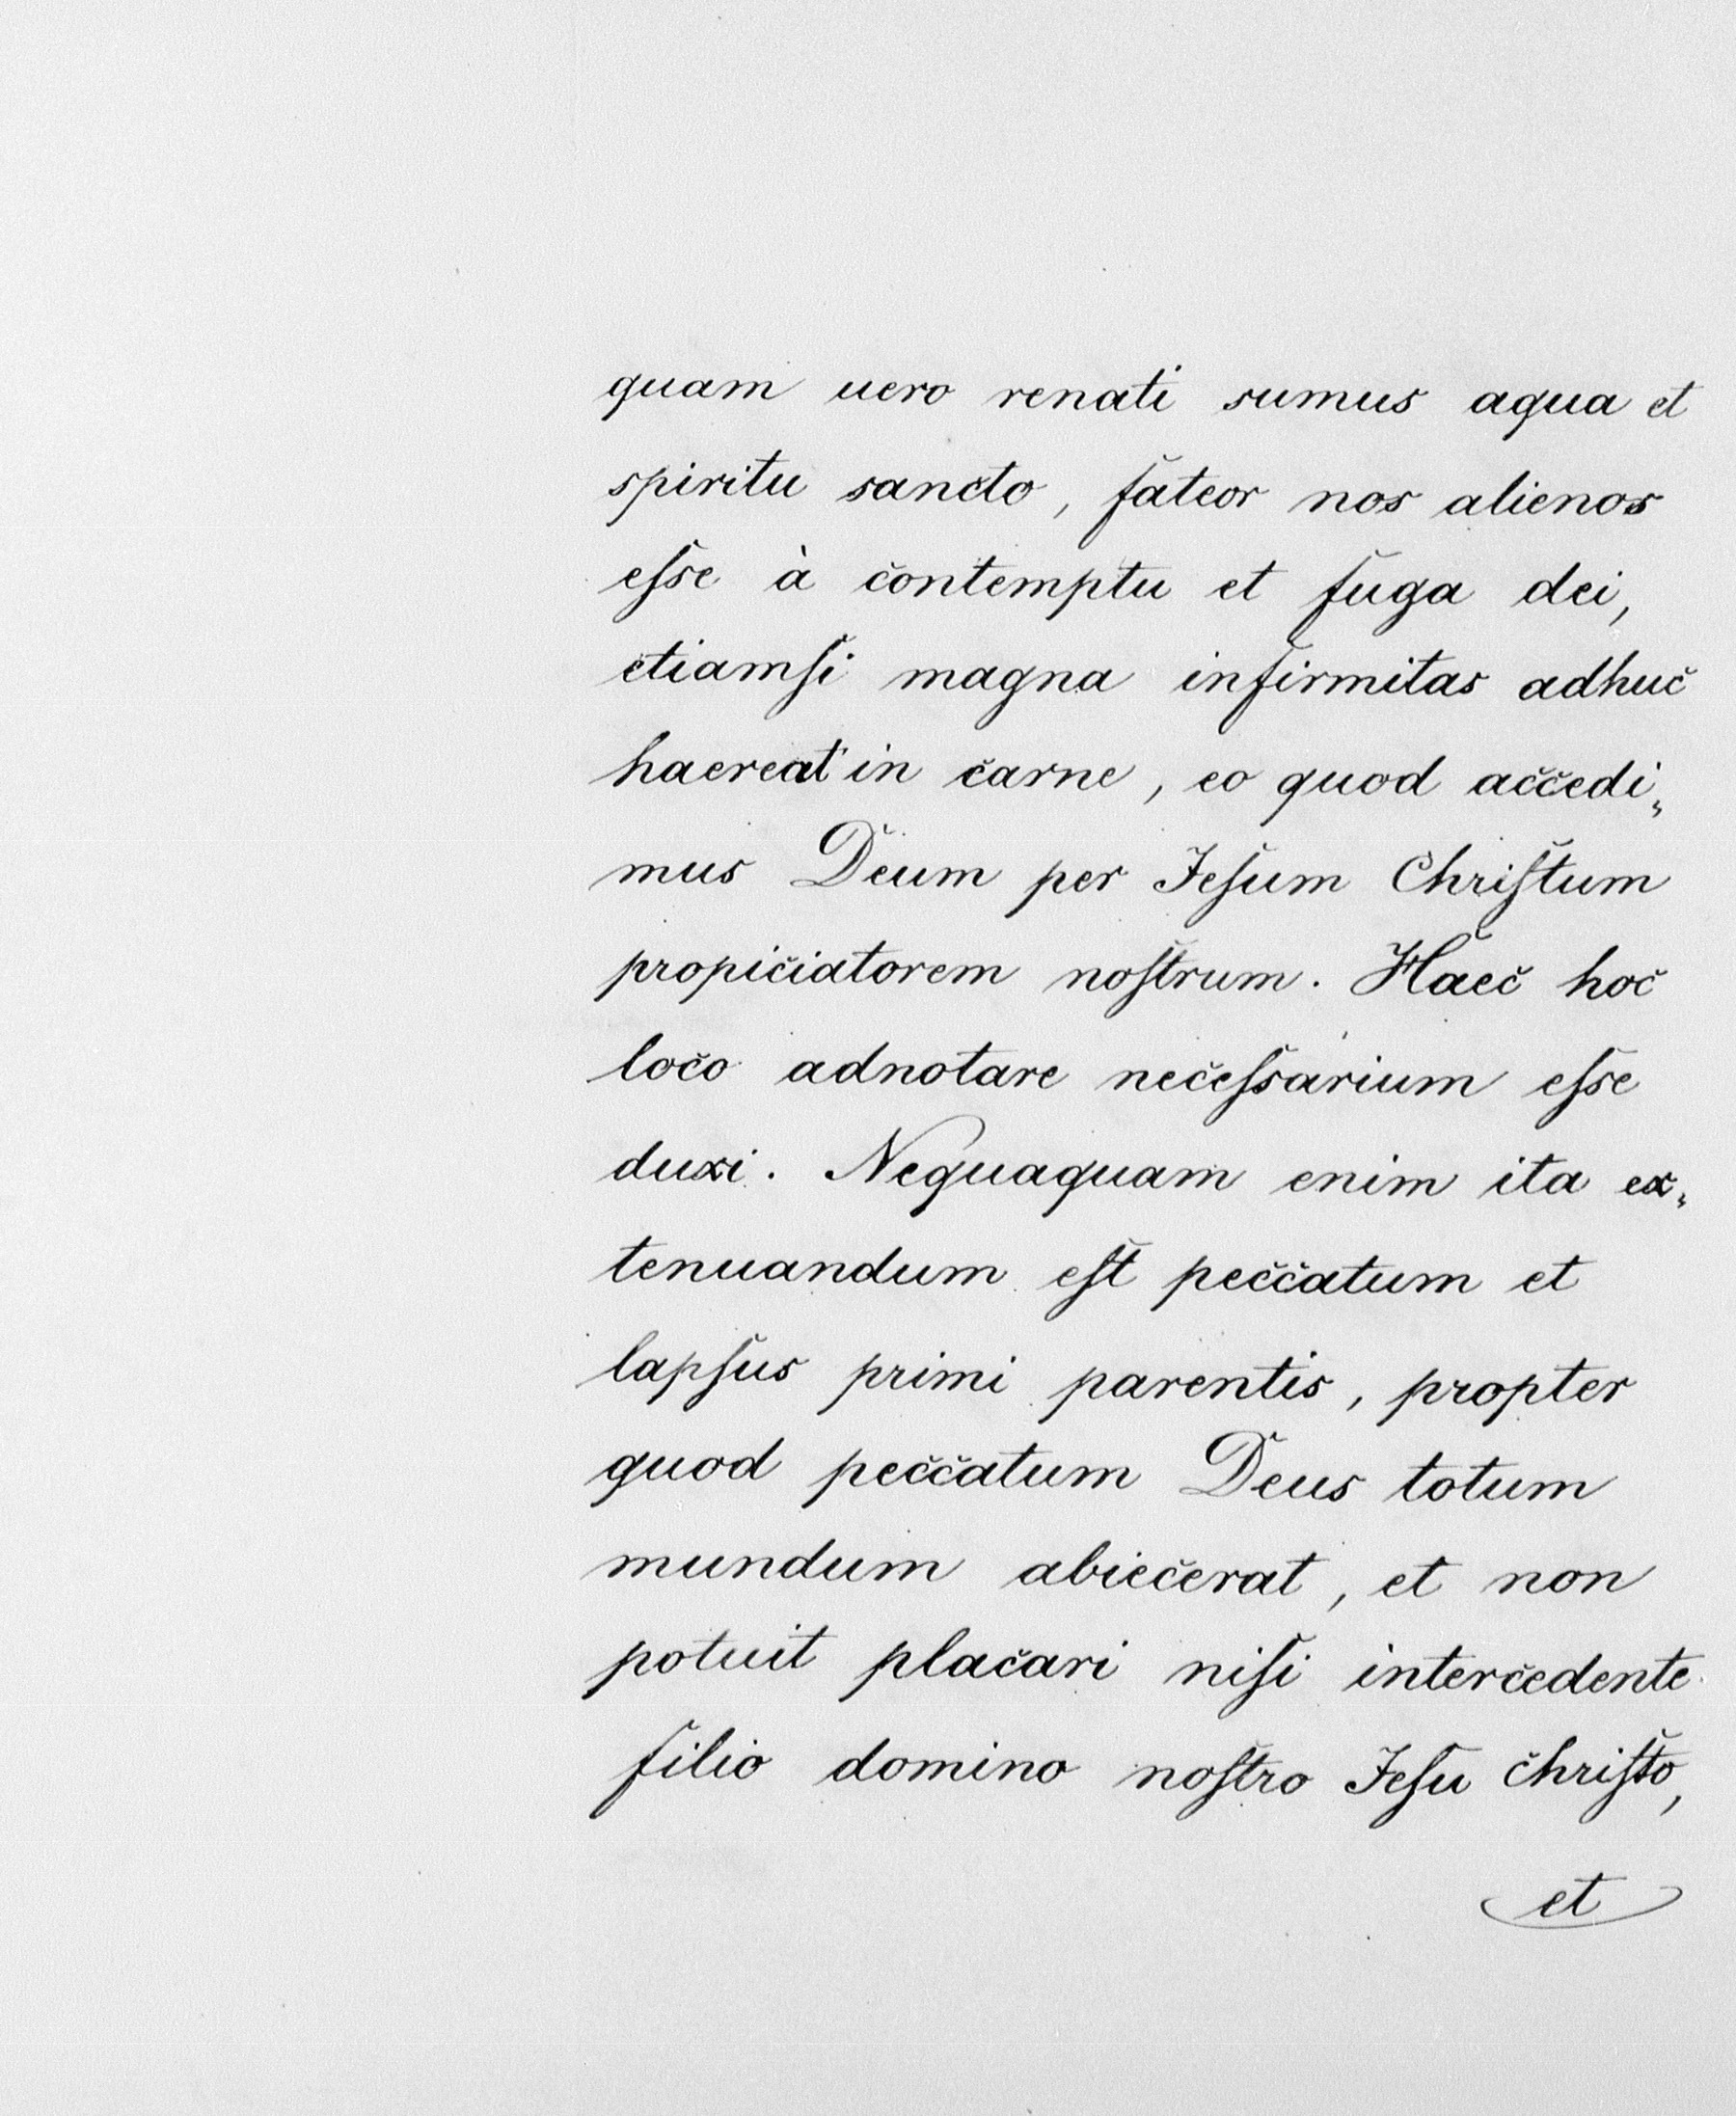 quam uero renati sumus aqua et
spiritu sancto, fateor nos alienos
eſse à contemptu et fuga dei,
etiamſi magna infirmitas adhuc
haereat in carne, eo quod accedi„
mus Deum per Jeſum Chriſtum
propiciatorem noſtrum. Haec hoc
loco adnotare neceſsarium eſse
duxi. Nequaquam enim ita ex„
tenuandum eſt peccatum et
lapſus primi parentis, propter
quod peccatum Deus totum
mundum abiecerat, et non
potuit placari niſi intercedente
filio domino noſtro Jeſu Chriſto,
et